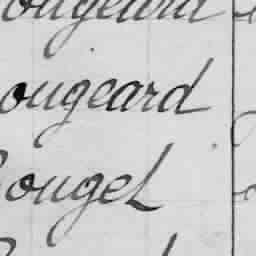 ougeard
ougeard
ougel